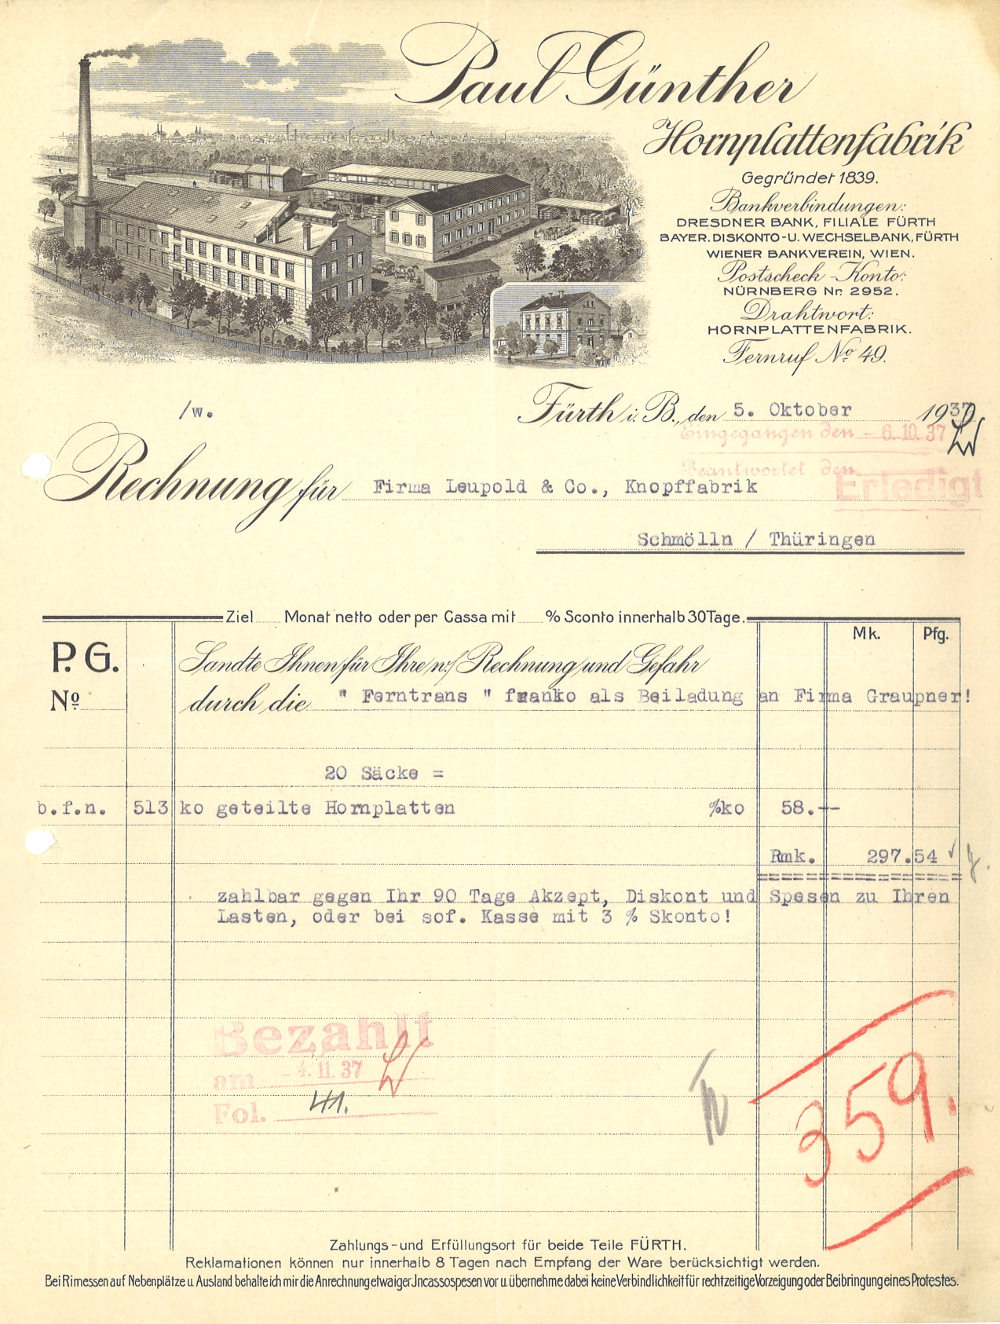 Paul Günther
Hornplattenfabrik
Gegründet 1839.
Bankverbindungen:
DRESDNER BANK, FILIALE FÜRTH
BAYER. DISKONTO- U. WECHSELBANK, FÜRTH
WIENER BANKVEREIN, WIEN.
Postscheck-Konto:
NÜRNBERG Nr. 2952.
Drahtwort:
HORNPLATTENFABRIK.
Fernruf No 49.
/w.
Fürth i. B., den 5. Oktober 1937
Eingegangen den - 6.10.37
Beantwortet den
Erledigt
Rechnung für Firma Leupold & Co., Knopffabrik
Schmölln / Thüringen
Ziel Monat netto oder per Cassa mit % Sconto innerhalb 30 Tage.
Mk. Pfg.
P. G. Sandte Ihnen für Ihre n:/ Rechnung und Gefahr
No durch die " Ferntrans " franko als Beiladung an Firma Graupner!
20 Säcke =
b.f.n. 513 ko geteilte Hornplatten %ko 58.--
Rmk. 297.54
zahlbar gegen Ihr 90 Tage Akzept, Diskont und Spesen zu Ihren
Lasten, oder bei sof. Kasse mit 3 % Skonto!
Bezahlt
am - 4. 11. 37
Fol. 41.
359.
Zahlungs- und Erfüllungsort für beide Teile FÜRTH.
Reklamationen können nur innerhalb 8 Tagen nach Empfang der Ware berücksichtigt werden.
Bei Rimessen auf Nebenplätze u. Ausland behalte ich mir die Anrechnung etwaiger Jncassospesen vor u. übernehme dabei keine Verbindlichkeit für rechtzeitige Vorzeigung oder Beibringung eines Protestes.